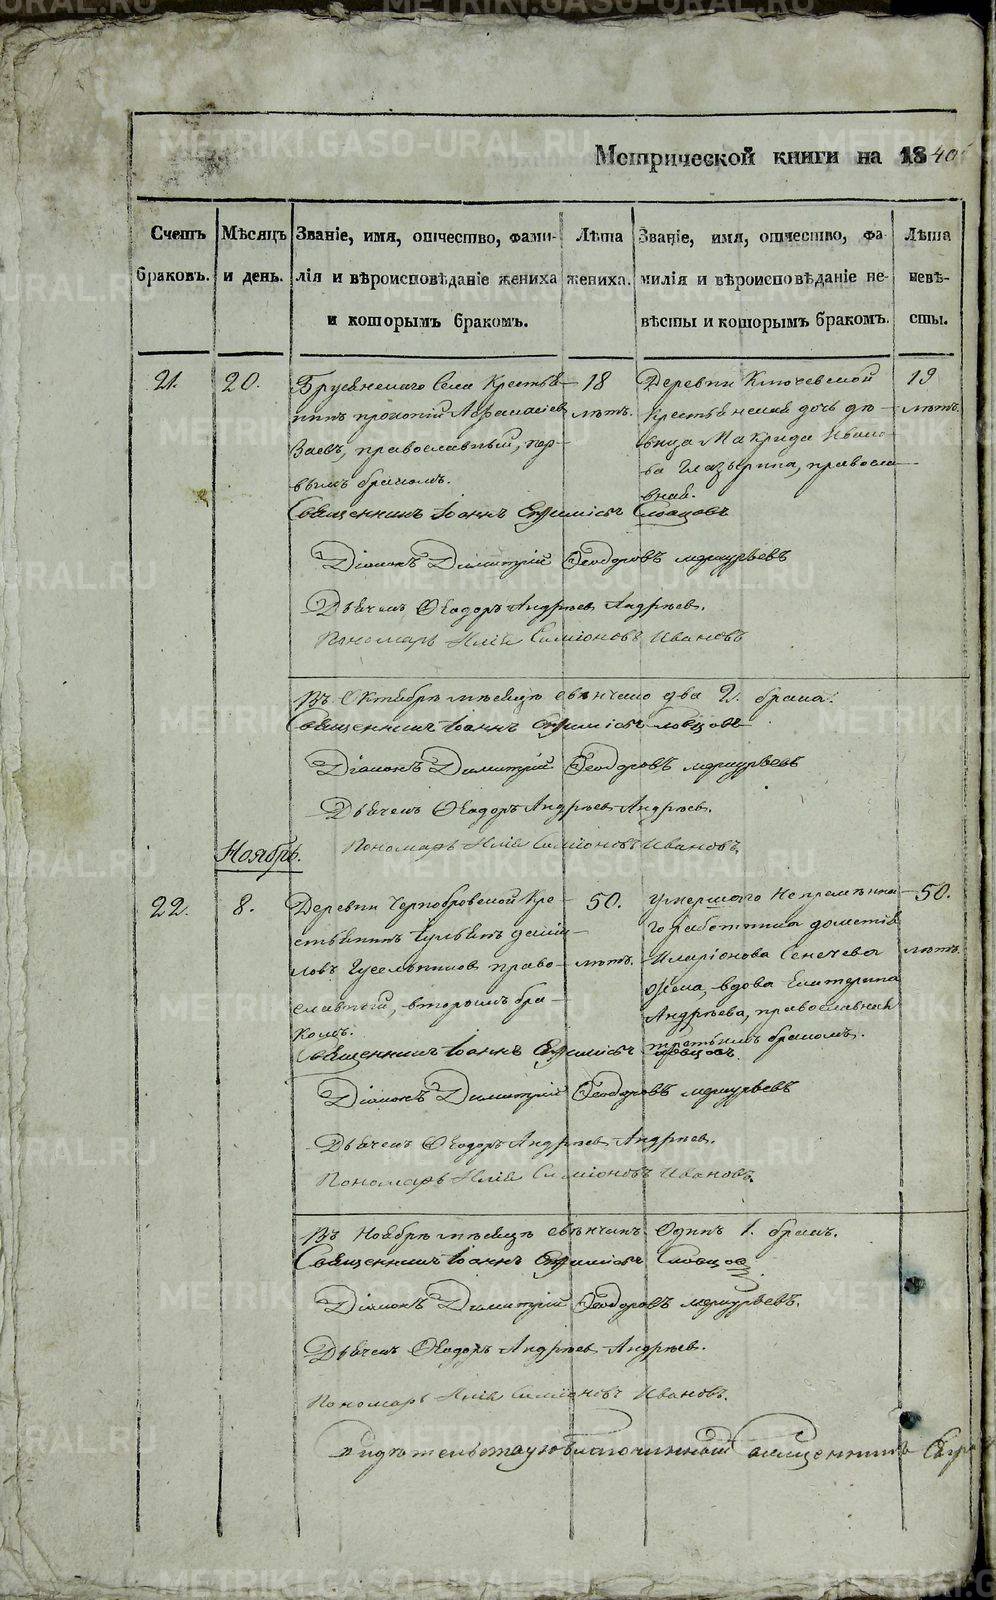 METRIKI.GASO-URAL.RU
Метрической книги на 1840
Счетъ браковъ.
Мѣсяцъ и день.
Званіе, имя, отчество, фами-
лія и вѣроисповѣданіе жениха
и которымъ бракомъ.
Лѣта жениха.
Званіе, имя, отчество, фа-
милія и вѣроисповѣданіе не-
вѣсты и которымъ бракомъ.
Лѣта невѣ-
сты.
21.
20.
Брусянскаго Села Крестья-
нинъ прокопій Афанасіев
Заевъ, православный, пер-
вымъ бракомъ.
18
лѣтъ.
Деревни Ключевской
крестьянская дочь дѣ-
вица Макрида Ивано-
ва Глазырина, правосла-
вная.
19
лѣтъ.
Священникъ Іоаннъ Евфиміевъ Словцовъ
Діаконъ Димитрій Ѳеодоровъ меркурьевъ
Дьячекъ Ѳеодоръ Андрѣев Андрѣев.
Пономарь Илія Симіоновъ Ивановъ
Въ Октябрѣ мѣсяцѣ свѣнчано два 2. брака.
Священникъ Іоаннъ Евфиміевъ Словцовъ
Діаконъ Димитрій Ѳеодоровъ меркурьевъ
Дьячекъ Ѳеодоръ Андрѣев Андрѣев.
Пономарь Илія Симіоновъ Ивановъ
Ноябрь.
22.
8.
Деревни Чернобровской Кре-
стьянинъ дани-
ловъ Гусельников право-
славный, вторымъ бра-
комъ.
50.
лѣтъ.
Умершаго Непремѣнна-
го работника дометія
Иларіонова Сенечева
Жена, вдова Екатерина
Андрѣева, православная
третьимъ бракомъ.
50.
лѣтъ.
Священникъ Іоаннъ Евфиміевъ Словцовъ.
Діаконъ Димитрій Ѳеодоровъ меркурьевъ
Дьячекъ Ѳеодоръ Андрѣев Андрѣев.
Пономарь Илія Симіоновъ Ивановъ.
Въ Ноябрѣ мѣсяцѣ свѣнчанъ Одинъ 1. бракъ.
Священникъ Іоаннъ Евфиміевъ Словцов
Діаконъ Димитрій Ѳеодоровъ меркурьевъ.
Дьячекъ Ѳеодоръ Андрѣев Андрѣев.
Пономарь Илія Симіоновъ Ивановъ.
свидѣтельствую благочинный Священникъ